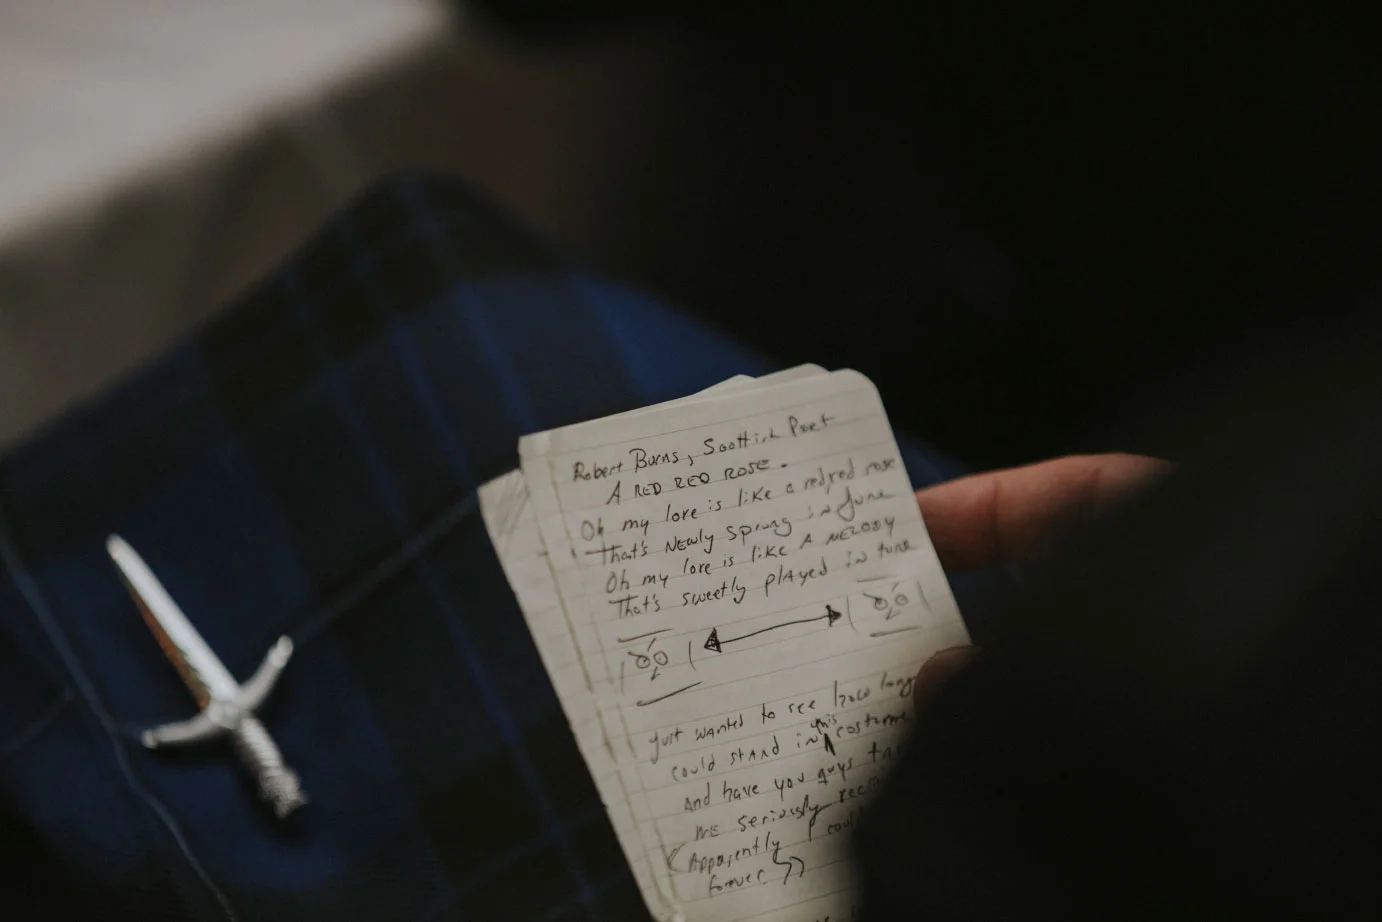 Robert Burns, Scottish Poet
A RED RED ROSE.
Oh my love is like a red, red rose
That's Newly Sprung in June
Oh my love is like A MELODY
That's sweetly plAyed in tune
just wanted to see how long
could stand in this costume
And have you guys
ME seriously
(Apparently I could
forever. ))